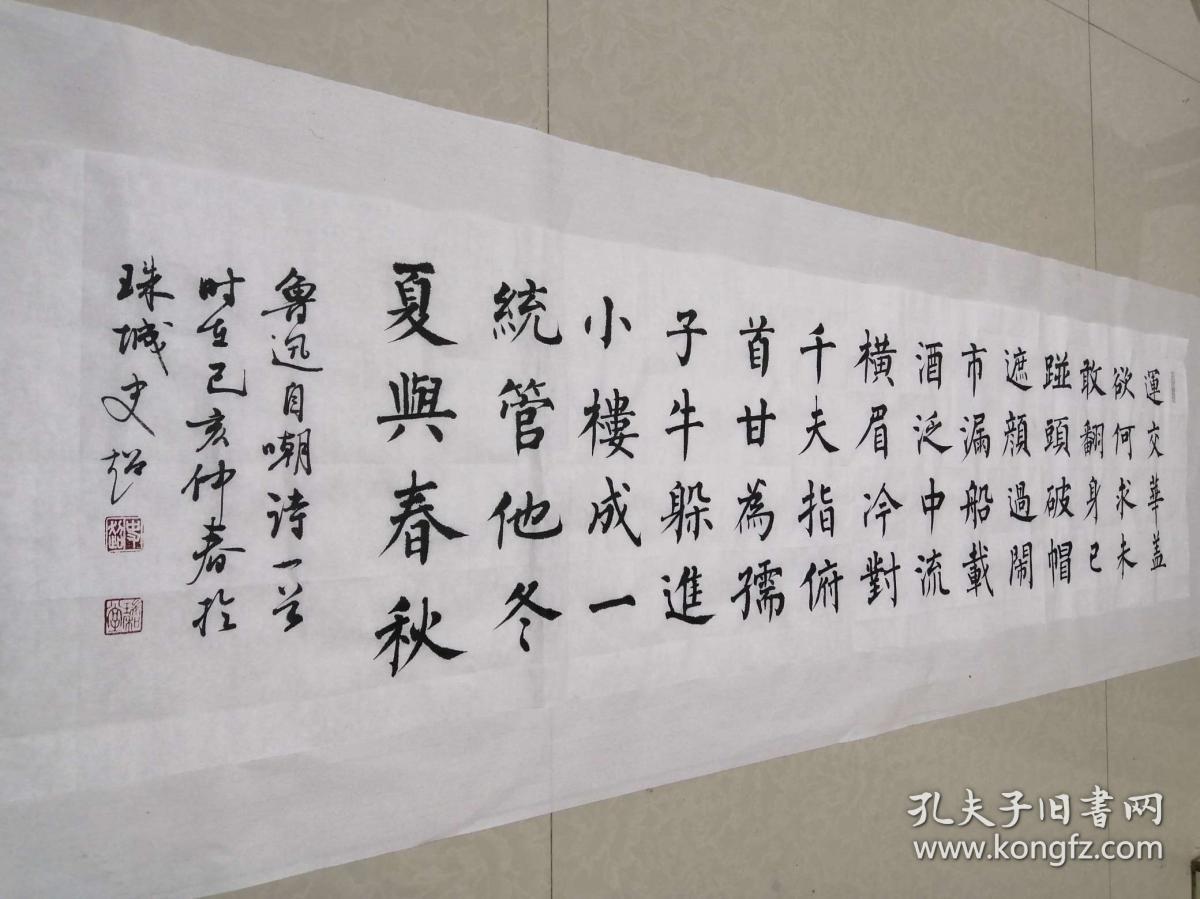 運交華盖
欲何求未
敢翻身已
踫頭破帽
遮顔過鬧
市漏船載
酒泛中流
橫眉冷對
千夫指俯
首甘為孺
子牛躲進
小樓成一
統管他冬
夏與春秋
魯迅自嘲诗一首
时在己亥仲春於
珠城史超
孔夫子旧书网
www.kongfz.com